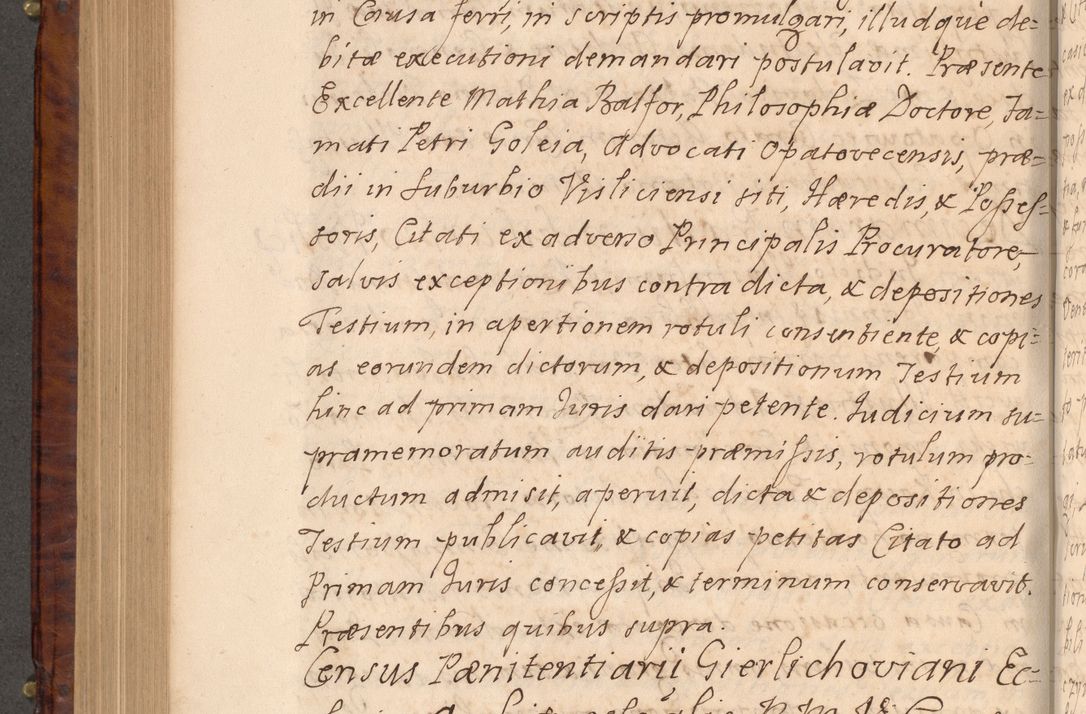 in Causa ferri, in scriptis promulgari, illudque de=
bitæ executioni demandari postulavit. Præsente
Excellente Mathia Balfor, Philosophiæ Doctore, Fa=
mati Petri Goleia, Advocati Opatovecensis, præ=
dii in suburbio Visliciensi siti, Hæredis, & Posses=
soris, Citati ex adverso Principalis Procuratore,
salvis exceptionibus contra dicta, & depositiones
Testium, in apertionem rotuli consentiente, & copi=
as eorundem dictorum, & depositionum Testium
hinc ad primam Juris dari petente. Judicium su=
pramemoratum auditis præmissis, rotulum pro=
ductum admisit, aperuit, dicta & depositiones
Testium publicavit, & copias petitas Citato ad
Primam Juris concessit, & terminum conservavit.
Præsentibus quibus supra.
Census Pænitentiarii Gierlichoviani Ec=